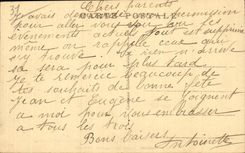 Chers parents
J'avais demandé permission
pour aller vous
évènements actuels tout est supprimé
même on rappelle ceux qui
s'y trouve. Si rien n'arrive
sa sera pour plus tard
Je te remercie beaucoup de
tes souhaits de bonne fête
Jean et Eugène se joignent
a moi pour vous embrasser
a tous les trois
Bons baisers
Antoinette
CARTE POSTALE